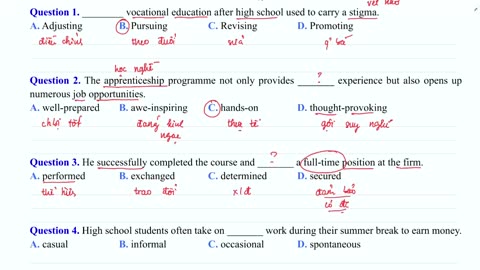 vết nhơ
Question 1. ________ vocational education after high school used to carry a stigma.
A. Adjusting B. Pursuing C. Revising D. Promoting
điều chỉnh theo đuổi sửa
học nghề
Question 2. The apprenticeship programme not only provides ___?___ experience but also opens up
numerous job opportunities.
A. well-prepared B. awe-inspiring C. hands-on D. thought-provoking
chbị tốt đáng kinh ngạc thực tế gợi suy nghĩ
?
Question 3. He successfully completed the course and _______ a full-time position at the firm.
A. performed B. exchanged C. determined D. secured
trao đổi x/đ đảm bảo
có đc
Question 4. High school students often take on _______ work during their summer break to earn money.
A. casual B. informal C. occasional D. spontaneous